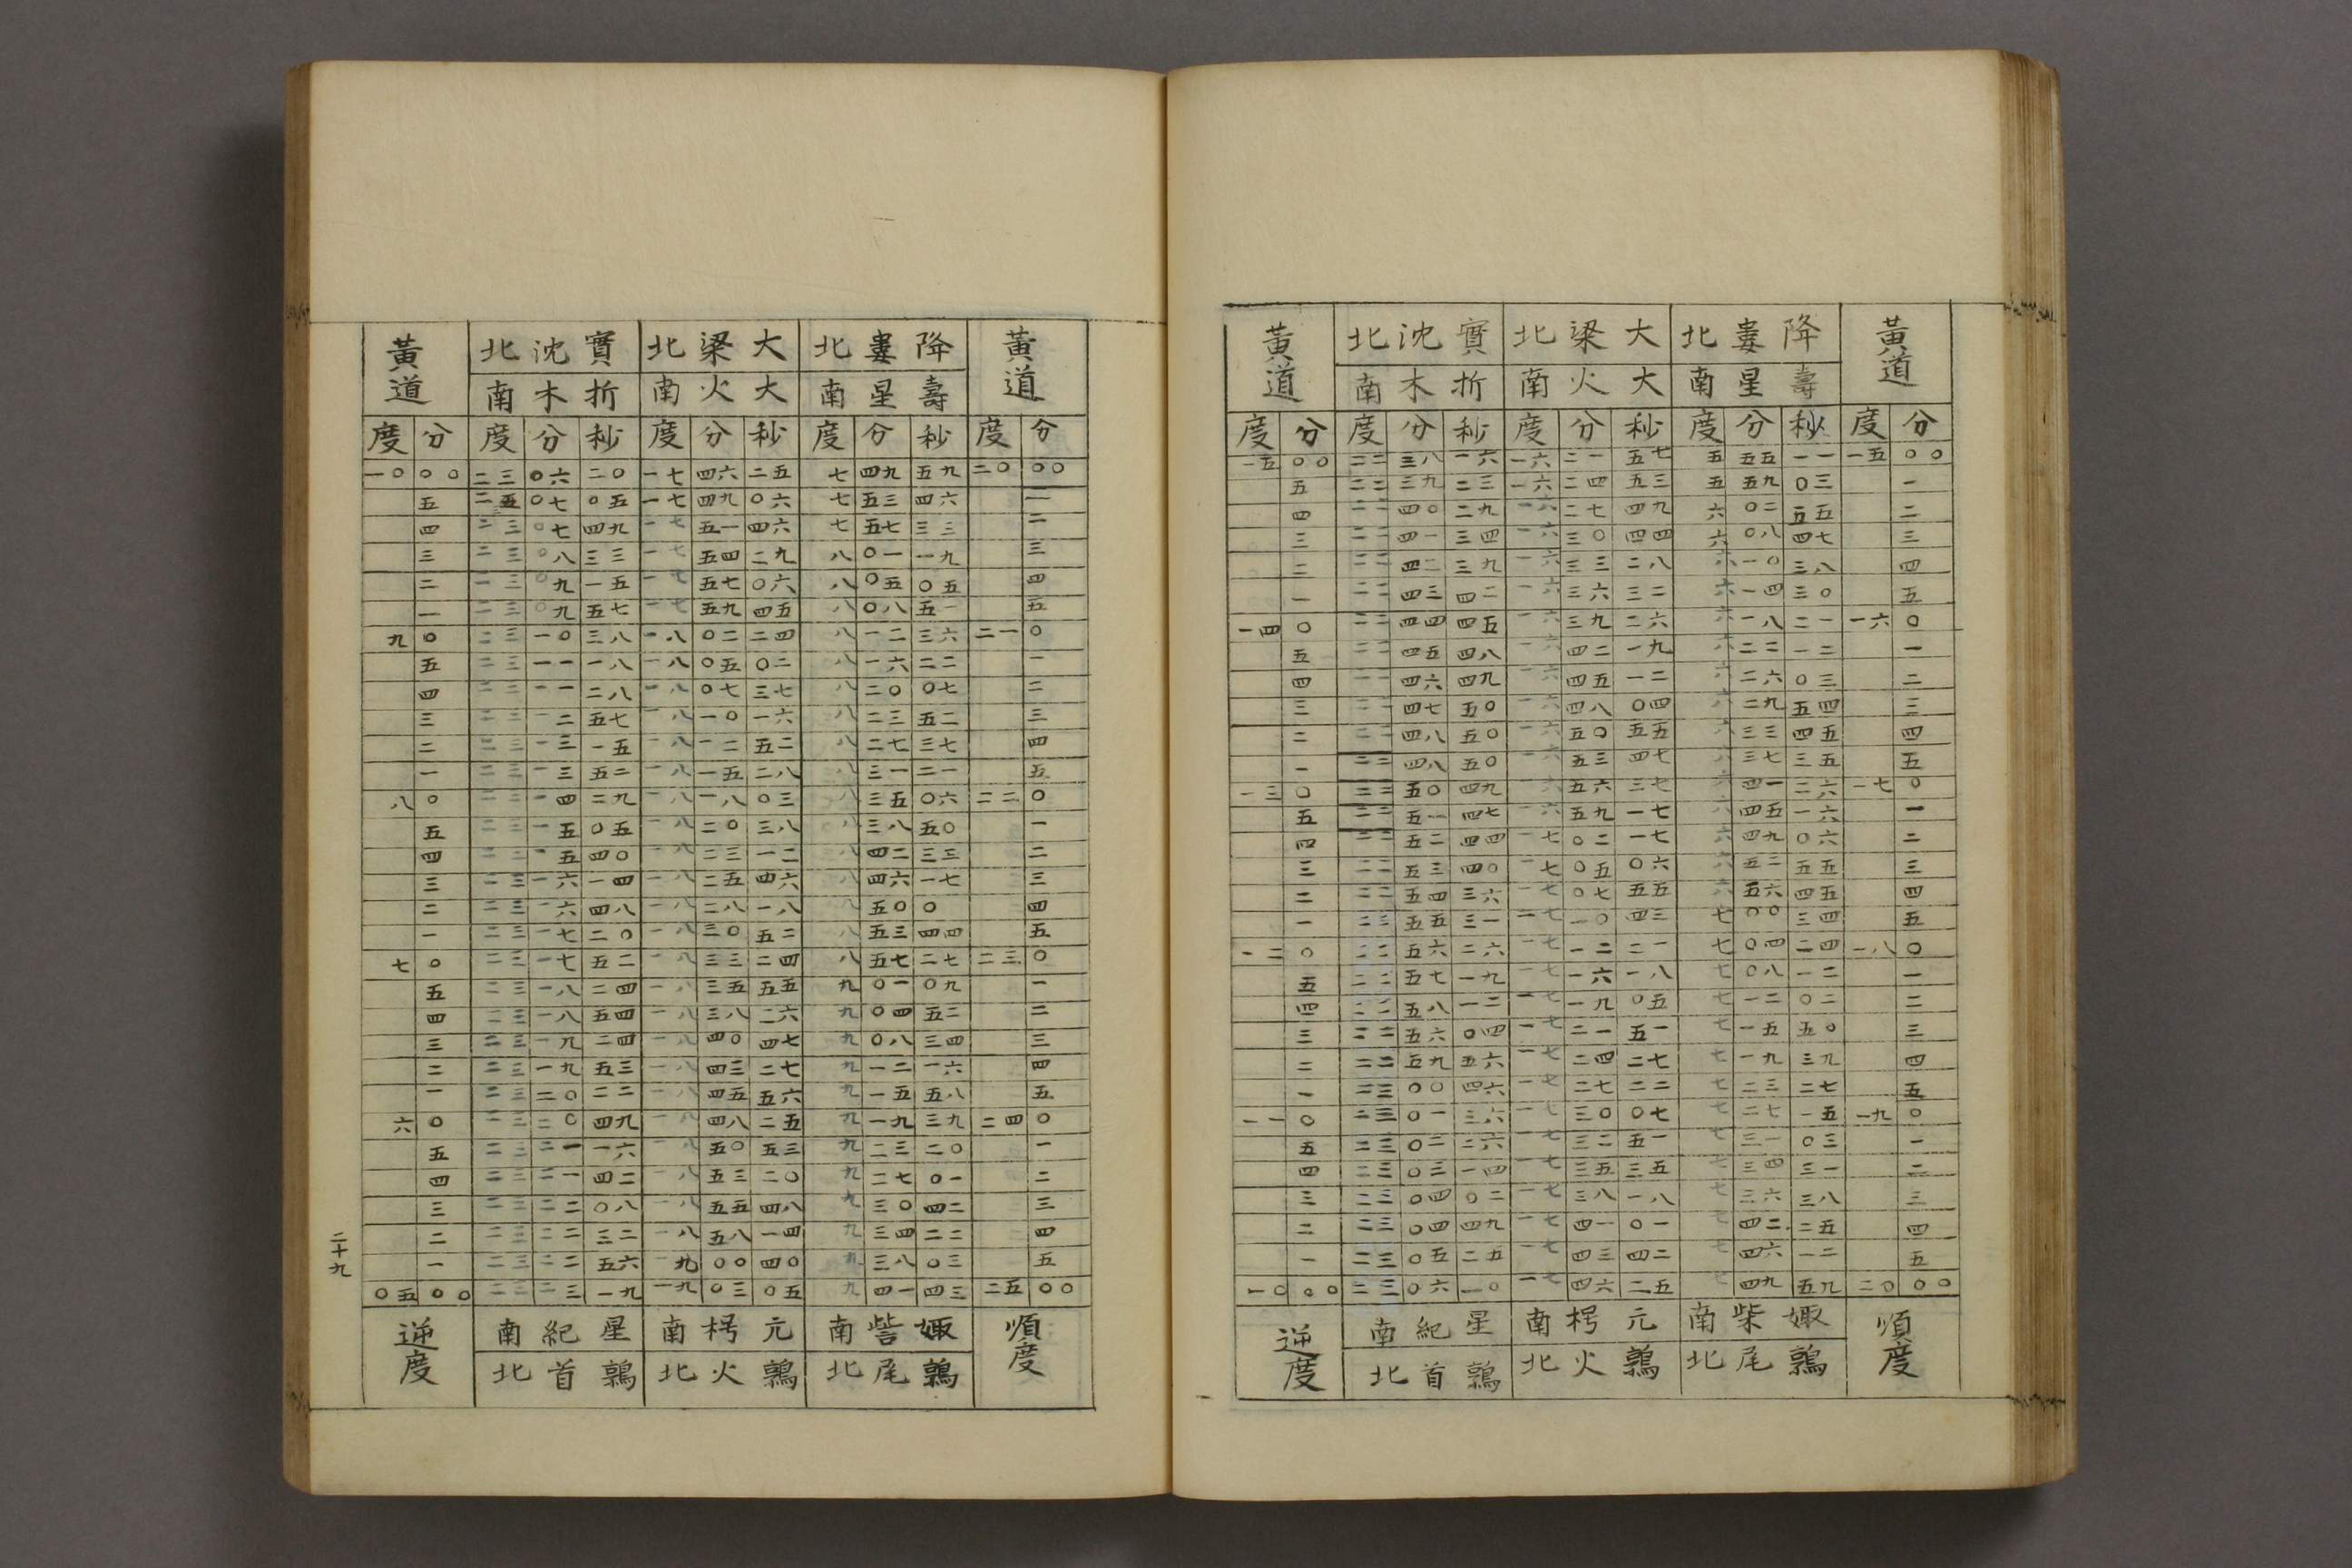 黃道 降婁北 大梁北 實沈北 黃道
壽星南 大火南 折木南
度 分 度 分 秒 度 分 秒 度 分 秒 度 分
一五 〇〇 二二 三八 一六 一六 二一 五七 五 五五 一一 一五 〇〇
五 二二 三九 二三 一六 二四 五三 五 五九 〇三 一
四 二二 四〇 二九 一六 二七 四九 六 〇二 五五 二
三 二二 四一 三四 一六 三〇 四四 六 〇八 四七 三
二 二二 四二 三九 一六 三三 二八 六 一〇 三八 四
一 二二 四三 四二 一六 三六 三二 六 一四 三〇 五
一四 〇 二二 四四 四五 一六 三九 二六 六 一八 二一 一六 〇
五 二二 四五 四八 一六 四二 一九 六 二二 一二 一
四 二二 四六 四九 一六 四五 一二 六 二六 〇三 二
三 二二 四七 五〇 一六 四八 〇四 六 二九 五四 三
二 二二 四八 五〇 一六 五〇 五五 六 三三 四五 四
一 二二 四八 五〇 一六 五三 四七 六 三七 三五 五
一三 〇 二二 五〇 四九 一六 五六 三七 六 四一 二六 一七 〇
五 二二 五一 四七 一六 五九 一七 六 四五 一六 一
四 二二 五二 四四 一七 〇二 一七 六 四九 〇六 二
三 二二 五三 四〇 一七 〇五 〇六 六 五二 五五 三
二 二二 五四 三六 一七 〇七 五五 六 五六 四五 四
一 二二 五五 三一 一七 一〇 四三 七 〇〇 三四 五
一二 〇 二二 五六 二六 一七 一二 二一 七 〇四 二四 一八 〇
五 二二 五七 一九 一七 一六 一八 七 〇八 一二 一
四 二二 五八 一二 一七 一九 〇五 七 一二 〇二 二
三 二二 五六 〇四 一七 二一 五一 七 一五 五〇 三
二 二二 五九 五六 一七 二四 二七 七 一九 三九 四
一 二三 〇〇 四六 一七 二七 二二 七 二三 二七 五
一一 〇 二三 〇一 三六 一七 三〇 〇七 七 二七 一五 一九 〇
五 二三 〇二 二六 一七 三二 五一 七 三一 〇三 一
四 二三 〇三 一四 一七 三五 三五 七 三四 三一 二
三 二三 〇四 〇二 一七 三八 一八 七 三六 三八 三
二 二三 〇四 四九 一七 四一 〇一 七 四二 二五 四
一 二三 〇五 二五 一七 四三 四二 七 四六 一二 五
一〇 〇〇 二三 〇六 一〇 一七 四六 二五 七 四九 五九 二〇 〇〇
順度 娵柴南 元枵南 星紀南 逆度
鶉尾北 鶉火北 鶉首北
黃道 降婁北 大梁北 實沈北 黃道
壽星南 大火南 折木南
度 分 度 分 秒 度 分 秒 度 分 秒 度 分
一〇 〇〇 二三 〇六 二〇 一七 四六 二五 七 四九 五九 二〇 〇〇
五 二五 〇七 〇五 一七 四九 〇六 七 五三 四六 一
四 二三 〇七 四九 一七 五一 四六 七 五七 三三 二
三 二三 〇八 三三 一七 五四 二九 八 〇一 一九 三
二 二三 〇九 一五 一七 五七 〇六 八 〇五 〇五 四
一 二三 〇九 五七 一七 五九 四五 八 〇八 五一 五
九 〇 二三 一〇 三八 一八 〇二 二四 八 一二 三六 二一 〇
五 二三 一一 一八 一八 〇五 〇二 八 一六 二二 一
四 二三 一一 二八 一八 〇七 三七 八 二〇 〇七 二
三 二三 一二 五七 一八 一〇 一六 八 二三 五二 三
二 二三 一三 一五 一八 一二 五二 八 二七 三七 四
一 二三 一三 五二 一八 一五 二八 八 三一 二一 五
八 〇 二三 一四 二九 一八 一八 〇三 八 三五 〇六 二二 〇
五 二三 一五 〇五 一八 二〇 三八 八 三八 五〇 一
四 二三 一五 四〇 一八 二三 一二 八 四二 三三 二
三 二三 一六 一四 一八 二五 四六 八 四六 一七 三
二 二三 一六 四八 一八 二八 一八 八 五〇 〇 四
一 二三 一七 二〇 一八 三〇 五二 八 五三 四四 五
七 〇 二三 一七 五二 一八 三三 二四 八 五七 二七 二三 〇
五 二三 一八 二四 一八 三五 五五 九 〇一 〇九 一
四 二三 一八 五四 一八 三八 二六 九 〇四 五二 二
三 二三 一九 二四 一八 四〇 四七 九 〇八 三四 三
二 二三 一九 五三 一八 四三 二七 九 一二 一六 四
一 二三 二〇 二二 一八 四五 五六 九 一五 五八 五
六 〇 二三 二〇 四九 一八 四八 二五 九 一九 三九 二四 〇
五 二三 二一 一六 一八 五〇 五三 九 二三 二〇 一
四 二三 二一 四二 一八 五三 二〇 九 二七 〇一 二
三 二三 二二 〇八 一八 五五 四八 九 三〇 四二 三
二 二三 二二 三二 一八 五八 一四 九 三四 二二 四
一 二三 二二 五六 一九 〇〇 四〇 九 三八 〇三 五
〇五 〇〇 二三 二三 一九 一九 〇三 〇五 九 四一 四三 二五 〇〇
順度 娵訾南 元枵南 星紀南 逆度
鶉尾北 鶉火北 鶉首北
二十九